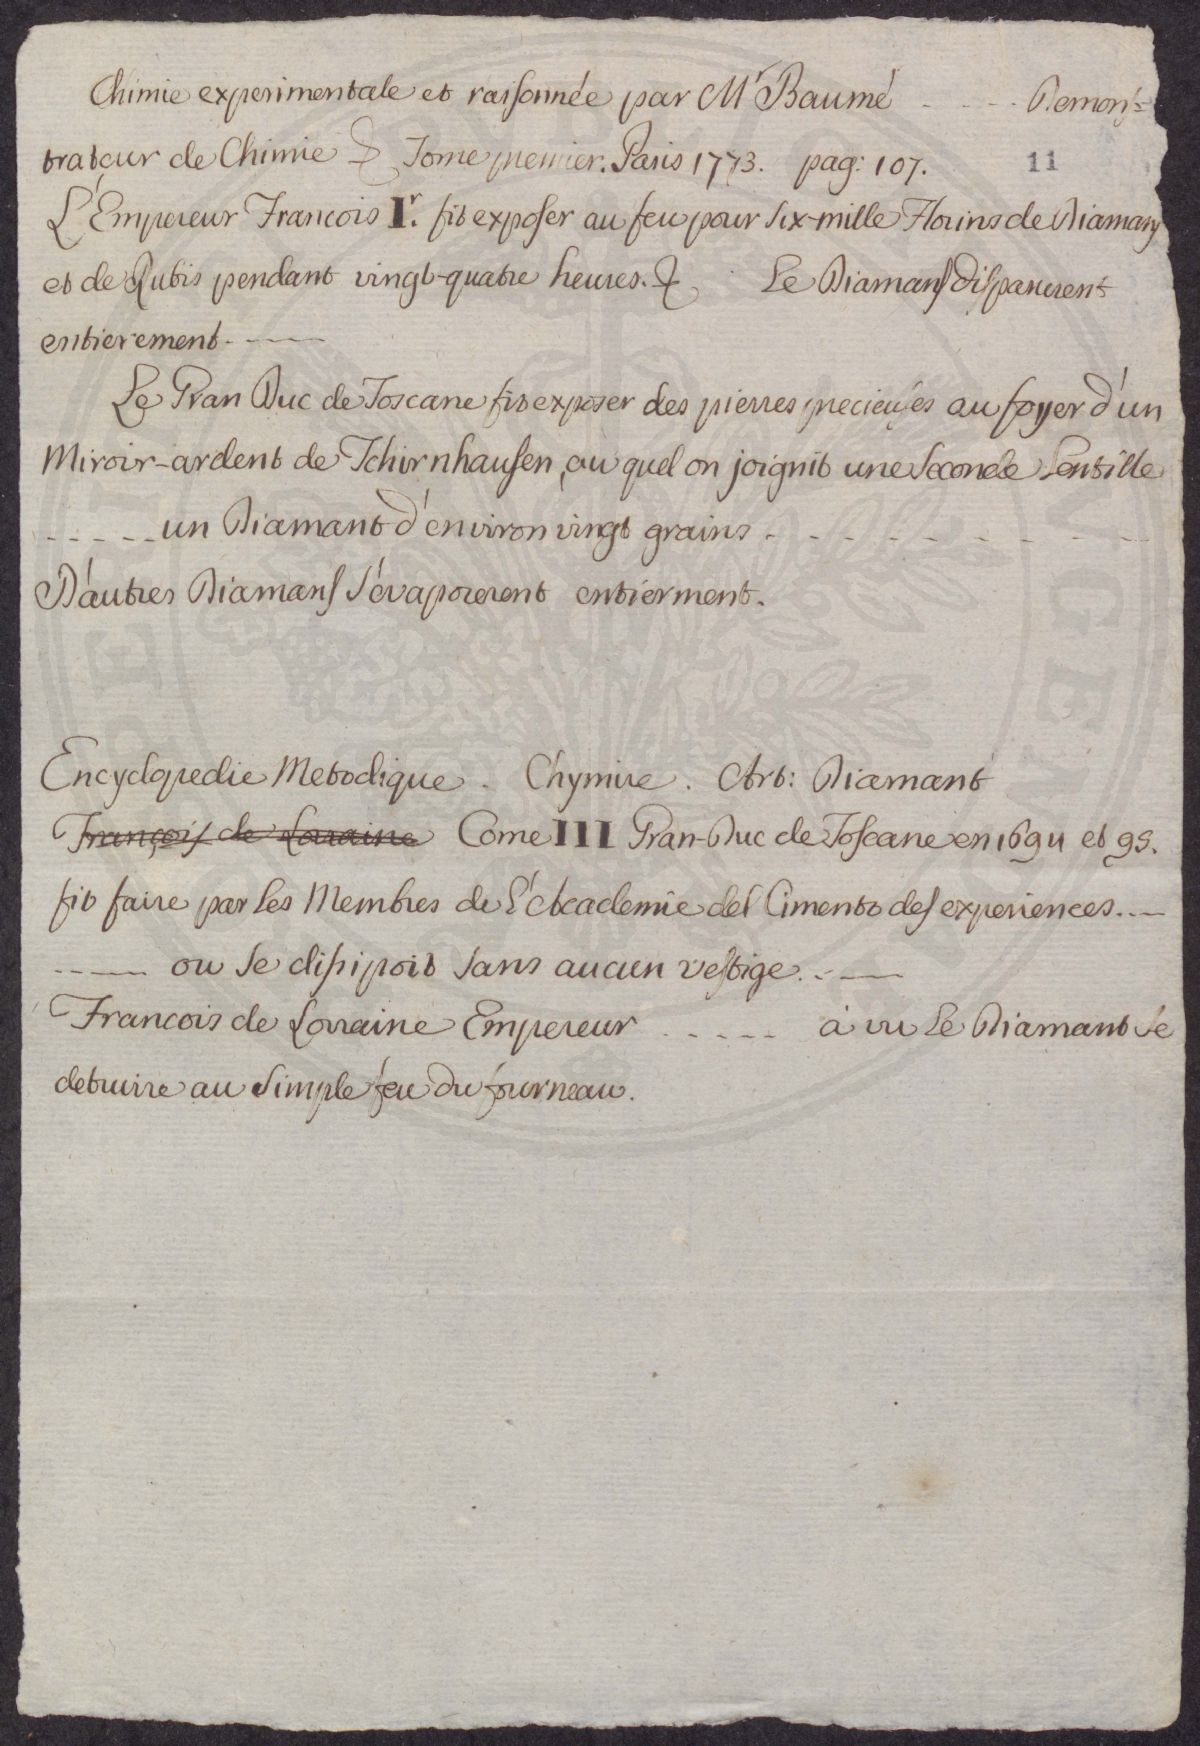 Chimie experimentale et raisonnée par Mr Baumé - - - - Demons=
trateur de Chimie & Tome premier. Paris 1773. pag: 107. 11
L'Empereur Francois Ir. fit exposer au feu pour six-mille Florins de Diamans
et de Rubis pendant vingt-quatre heures. & Le Diamans disparurent
entierement - - - -
Le Gran Duc de Toscane fit exposer des pierres precieuses au foyer d'un
Miroir-ardent de Tchirnhausen, au quel on joignit une seconde Lentille
- - - - - un Diamant d'environ vingt grains - - - - - - - - -
D'autres Diamans s'évaporerent entierment.
Encyclopedie Metodique. Chymie. Art: Diamant
François de Loraine Come III Gran-Duc de Toscane en 1694 et 95.
fit faire par les Membres de l'Academie del Cimento des experiences. - -
- - - - ou se disipoit sans aucun vestige. - - -
Francois de Lorraine Empereur - - - - - à vu le Diamant se
detruire au simple feu du fourneau.